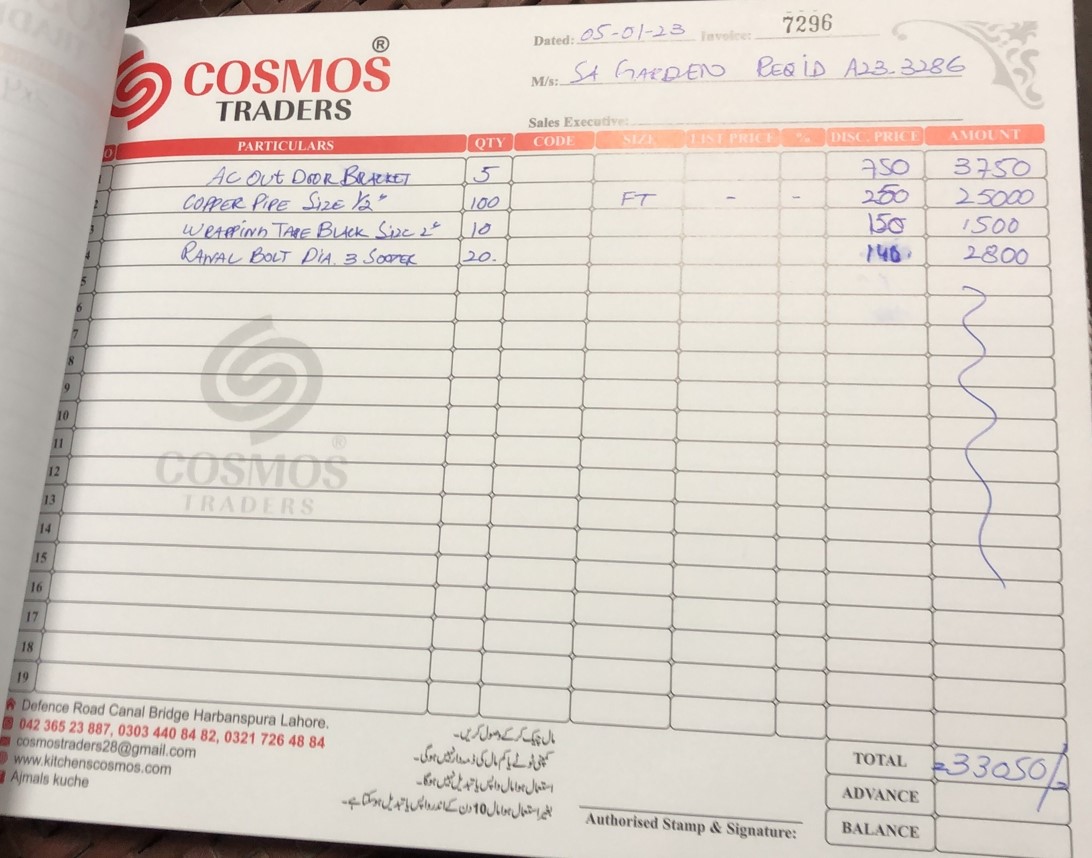 COSMOS ®
TRADERS
Dated: 05-01-23 Invoice: 7296
M/s: SA GARDEN REQ ID A23-3286
Sales Executive:
O PARTICULARS QTY CODE SIZE LIST PRICE % DISC. PRICE AMOUNT
1 AC OUT DOOR BRACKET 5 750 3750
2 COPPER PIPE SIZE 1/2" 100 FT - - 250 25000
3 WRAPPING TAPE BLACK SIZE 2" 10 150 1500
4 RAWAL BOLT DIA. 3 SOOTER 20. 140 2800
5
6
7
8
9
10
11
12
13
14
15
16
17
18
19
COSMOS ®
TRADERS
Defence Road Canal Bridge Harbanspura Lahore.
042 365 23 887, 0303 440 84 82, 0321 726 48 84
cosmostraders28@gmail.com
www.kitchenscosmos.com
Ajmals kuche
مال چیک کر کے وصول کریں۔
کمپنی ٹوٹے یا کم مال کی ذمہ دار نہیں ہوگی۔
استعمال ہوا مال واپس یا تبدیل نہیں ہوگا۔
بغیر استعمال ہوا مال 10 دن کے اندر واپس یا تبدیل ہوسکتا ہے۔
Authorised Stamp & Signature:
TOTAL =33050/=
ADVANCE
BALANCE